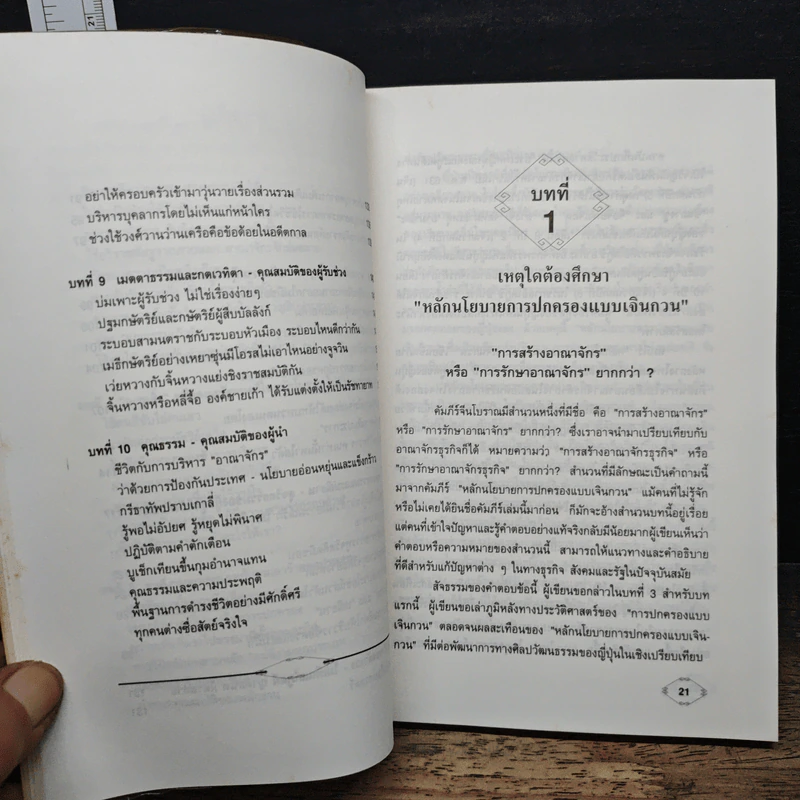 21
อย่าให้ครอบครัวเข้ามาวุ่นวายเรื่องส่วนรวม
บริหารบุคลากรโดยไม่เห็นแก่หน้าใคร
ช่วงใช้วงศ์วานว่านเครือคือข้อด้อยในอดีตกาล
บทที่ 9 เมตตาธรรมและกตเวทิตา - คุณสมบัติของผู้รับช่วง
บ่มเพาะผู้รับช่วง ไม่ใช่เรื่องง่ายๆ
ปฐมกษัตริย์และกษัตริย์ผู้สืบบัลลังก์
ระบอบสามนตราชกับระบอบหัวเมือง ระบอบไหนดีกว่ากัน
เมธีกษัตริย์อย่างเหยาซุ่นมีโอรสไม่เอาไหนอย่างจูจวิน
เว่ยหวางกับจิ้นหวางแย่งชิงราชสมบัติกัน
จิ้นหวางหรือหลี่จื้อ องค์ชายเก้า ได้รับแต่งตั้งให้เป็นรัชทายาท
บทที่ 10 คุณธรรม - คุณสมบัติของผู้นำ
ชีวิตกับการบริหาร "อาณาจักร"
ว่าด้วยการป้องกันประเทศ - นโยบายอ่อนหยุ่นและแข็งกร้าว
กรีธาทัพปราบเกาลี่
รู้พอไม่อัปยศ รู้หยุดไม่พินาศ
ปฏิบัติตามคำตักเตือน
บูเช็กเทียนขึ้นกุมอำนาจแทน
คุณธรรมและความประพฤติ
พื้นฐานการดำรงชีวิตอย่างมีศักดิ์ศรี
ทุกคนต่างซื่อสัตย์จริงใจ
บทที่
1
เหตุใดต้องศึกษา
"หลักนโยบายการปกครองแบบเจินกวน"
"การสร้างอาณาจักร"
หรือ "การรักษาอาณาจักร" ยากกว่า ?
คัมภีร์จีนโบราณมีสำนวนหนึ่งที่มีชื่อ คือ "การสร้างอาณาจักร"
หรือ "การรักษาอาณาจักร" ยากกว่า? ซึ่งเราอาจนำมาเปรียบเทียบกับ
อาณาจักรธุรกิจก็ได้ หมายความว่า "การสร้างอาณาจักรธุรกิจ" หรือ
"การรักษาอาณาจักรธุรกิจ" ยากกว่า? สำนวนที่มีลักษณะเป็นคำถามนี้
มาจากคัมภีร์ "หลักนโยบายการปกครองแบบเจินกวน" แม้คนที่ไม่รู้จัก
หรือไม่เคยได้ยินชื่อคัมภีร์เล่มนี้มาก่อน ก็มักจะอ้างสำนวนบทนี้อยู่เรื่อย
แต่คนที่เข้าใจปัญหาและรู้คำตอบอย่างแท้จริงกลับมีน้อยมากผู้เขียนเห็นว่า
คำตอบหรือความหมายของสำนวนนี้ สามารถให้แนวทางและคำอธิบาย
ที่ดีสำหรับแก้ปัญหาต่าง ๆ ในทางธุรกิจ สังคมและรัฐในปัจจุบันสมัย
สัจธรรมของคำตอบข้อนี้ ผู้เขียนขอกล่าวในบทที่ 3 สำหรับบท
แรกนี้ ผู้เขียนขอเล่าภูมิหลังทางประวัติศาสตร์ของ "การปกครองแบบ
เจินกวน" ตลอดจนผลสะเทือนของ "หลักนโยบายการปกครองแบบเจิน-
กวน" ที่มีต่อพัฒนาการทางศิลปวัฒนธรรมของญี่ปุ่นในเชิงเปรียบเทียบ
21